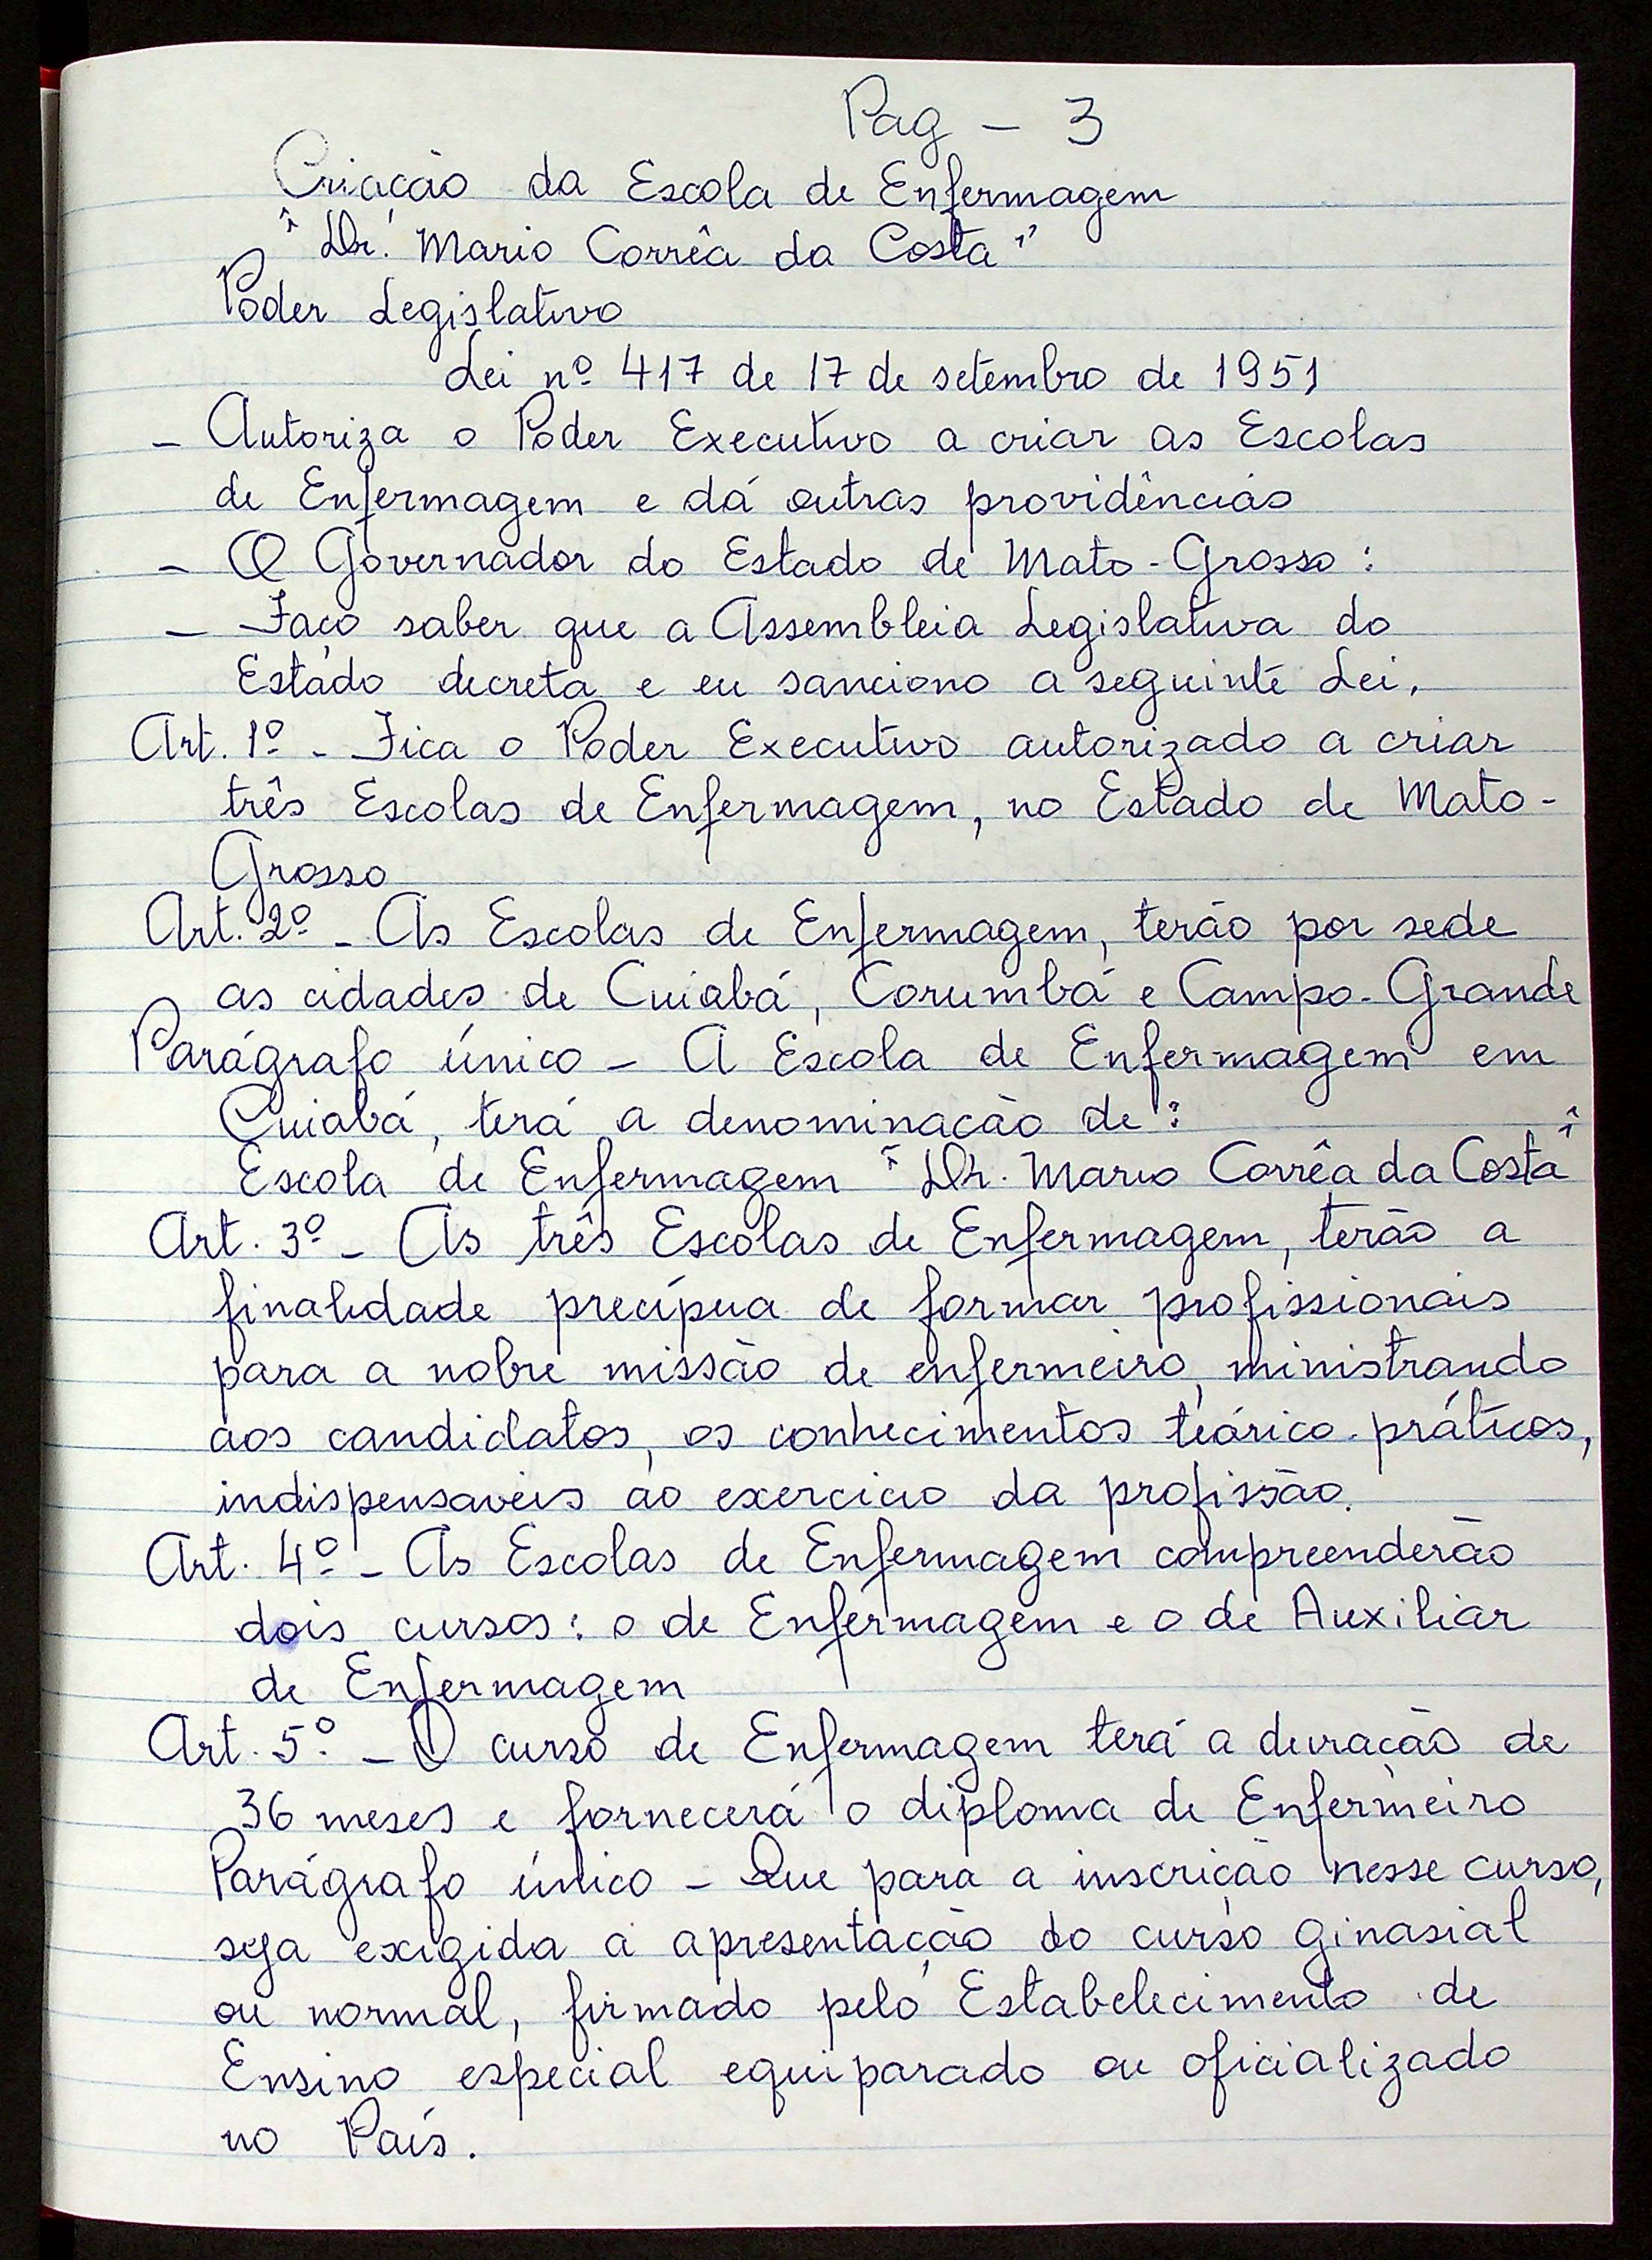 Pag - 3
Criação da Escola de Enfermagem
"Dr. Mario Corrêa da Costa"
Poder Legislativo
Lei nº 417 de 17 de setembro de 1951
- Autoriza o Poder Executivo a criar as Escolas
de Enfermagem e dá outras providências
- O Governador do Estado de Mato-Grosso:
- Faço saber que a Assembleia Legislativa do
Estado decreta e eu sanciono a seguinte Lei.
Art. 1º - Fica o Poder Executivo autorizado a criar
três Escolas de Enfermagem, no Estado de Mato-
Grosso
Art. 2º - As Escolas de Enfermagem, terão por sede
as cidades de Cuiabá, Corumbá e Campo-Grande
Parágrafo único - A Escola de Enfermagem em
Cuiabá, terá a denominação de:
Escola de Enfermagem "Dr. Mario Corrêa da Costa"
Art. 3º - As três Escolas de Enfermagem, terão a
finalidade precípua de formar profissionais
para a nobre missão de enfermeiro, ministrando
aos candidatos, os conhecimentos teórico-práticos,
indispensaveis ao exercicio da profissão.
Art. 4º - As Escolas de Enfermagem compreenderão
dois cursos: o de Enfermagem e o de Auxiliar
de Enfermagem
Art. 5º - O curso de Enfermagem terá a duração de
36 meses e fornecerá o diploma de Enfermeiro
Parágrafo único - Que para a inscrição nesse curso,
seja exigida a apresentação do curso ginasial
ou normal, firmado pelo Estabelecimento de
Ensino especial equiparado ou oficializado
no País.